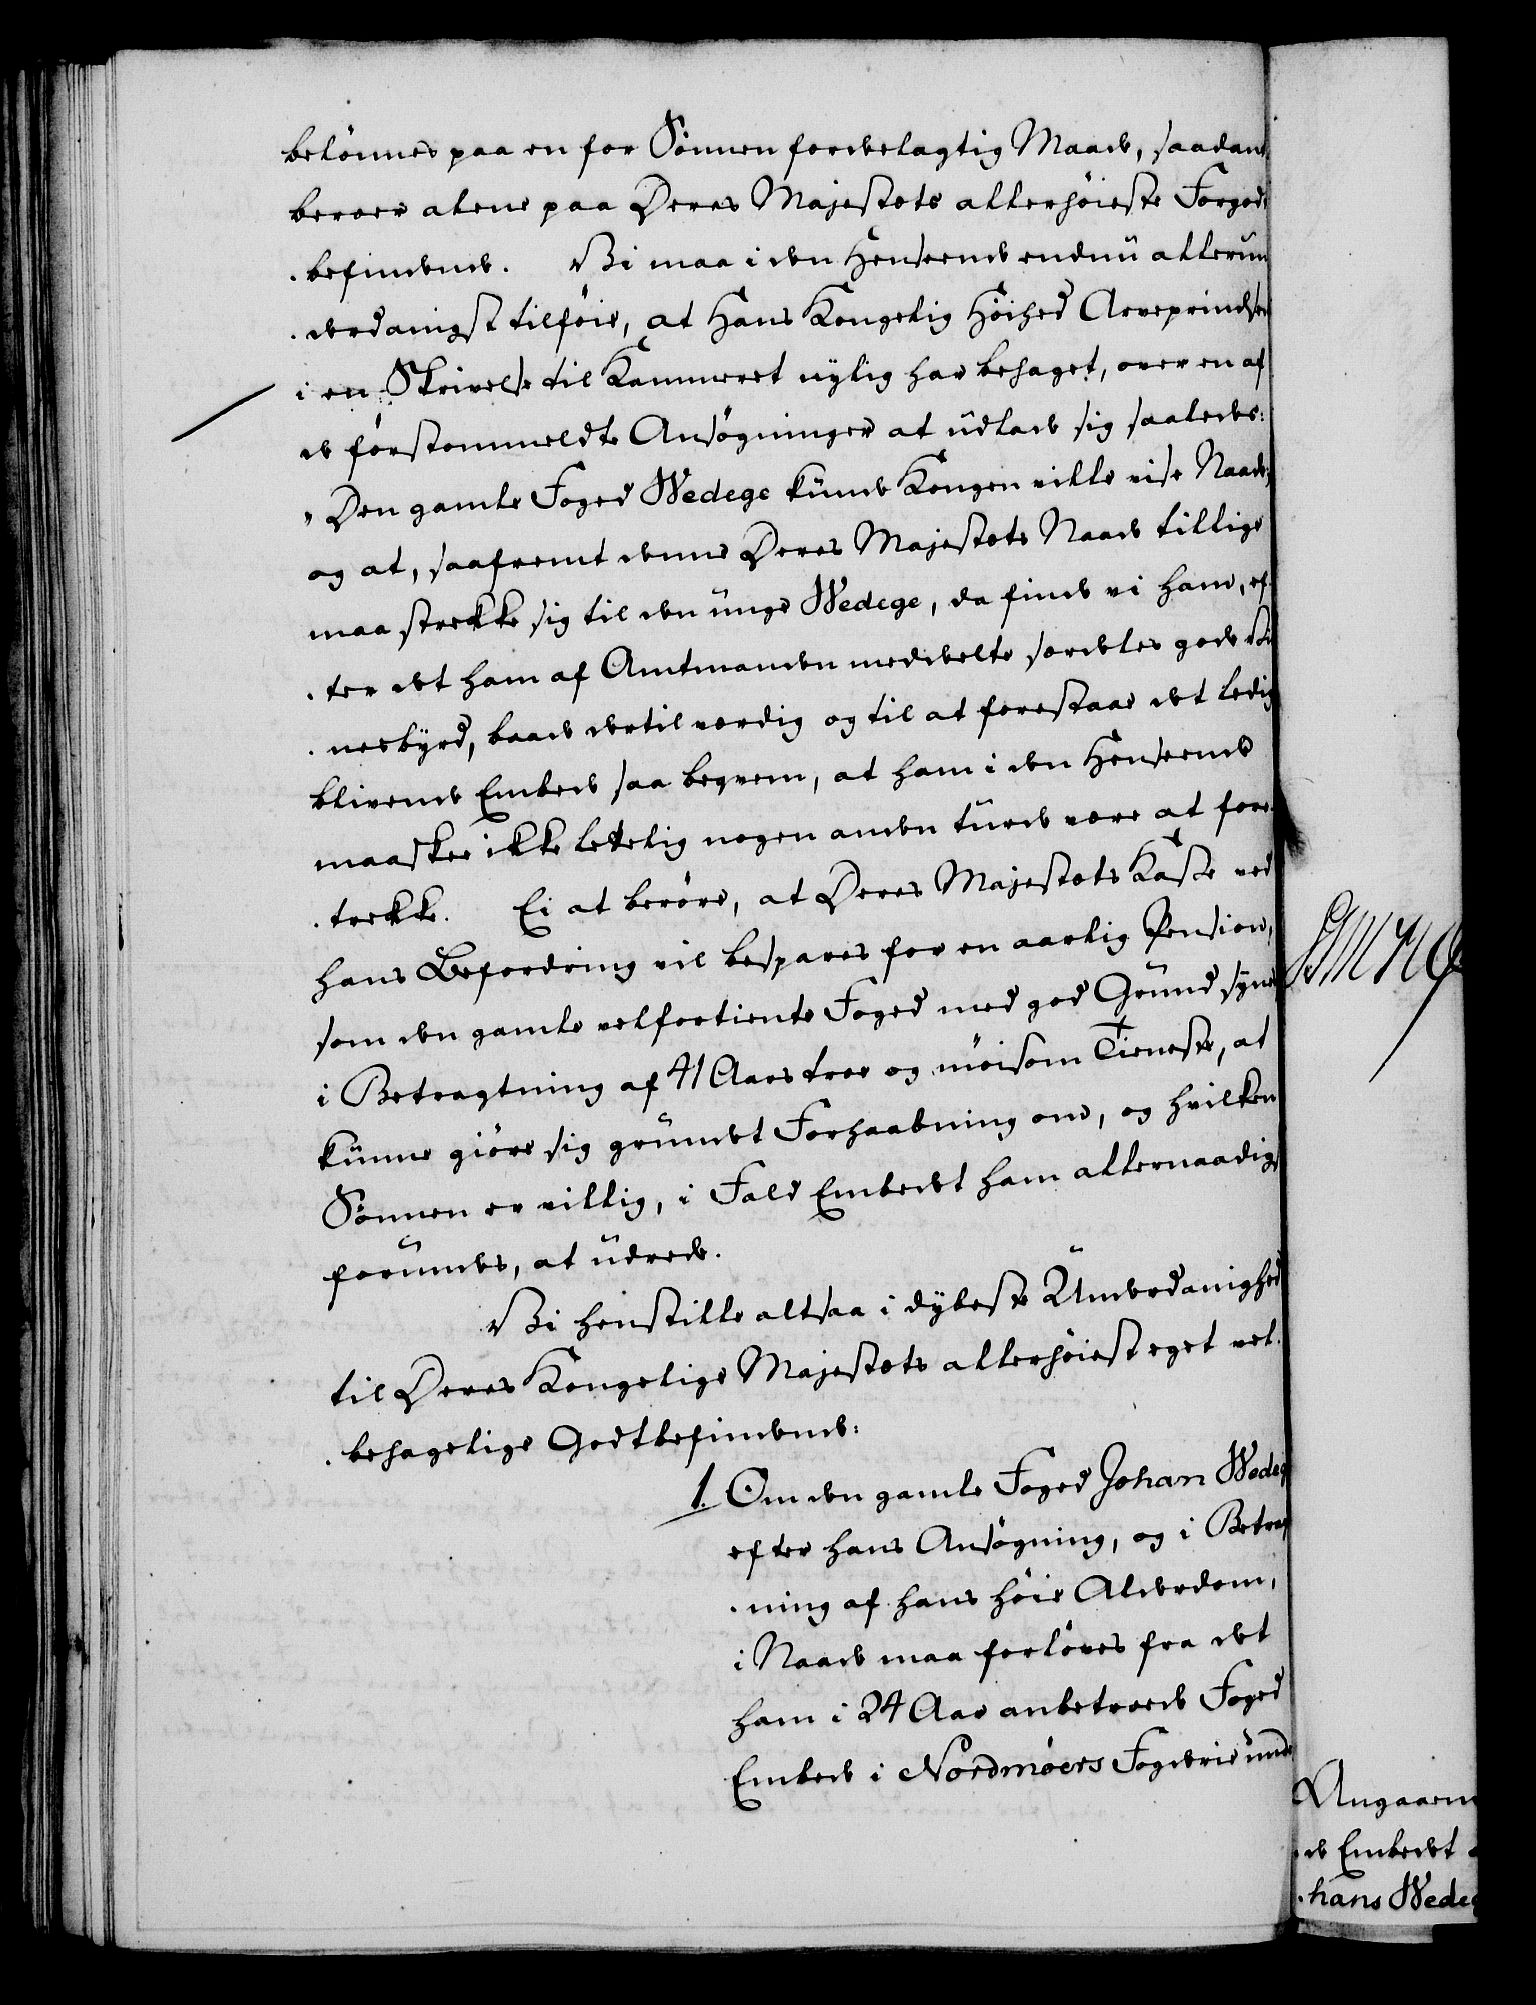 belönnes paa en for Sönnen fordelagtig Maade, saadant
beroer alene paa Deres Majestæts allerhöieste Forgodt
.befindende. Vi maa i den Henseende endnu allerun
.derdanigst tilföie, at Hans Kongelig Höihed Arveprindsen
i en Skrivelse til Kammeret nylig har behaget, over en af
de förstommeldte Ansögninger at udlade sig saaledes:
"Den gamle Foged Wedege kunde Kongen ville vise Naade;
og at, saafremt denne Deres Majestæts Naade tillige
maa strekke sig til den unge Wedege, da finde vi ham, ef
.ter det ham af Amtmanden meddelte særdeles gode Vid
.nesbyrd, baade dertil værdig og til at forestaae det ledig
blivende Embede saa beqvem, at ham i den Henseende
maaskee ikke letelig nogen anden turde være at fore
.trekke. Ei at beröre, at Deres Majestæts Kasse ved
hans Befordring vil bespares for en aarlig Pension,
som den gamle velfortiente Foged med god Grund synes
i Betragtning af 41 Aars troe og möisom Tieneste, at
kunne giöre sig grundet Forhaabning om, og hvilken
Sönnen er villig, i Fald Embedet ham allernaadigst
forundes, at udrede.
Vi henstille altsaa i dybeste Underdanighed
til Deres Kongelige Majestæts allerhöiest eget vel
.behagelige Godtbefindende:
1. Om den gamle Foged Johan Wedege
efter hans Ansögning, og i Betragt
.ning af hans höie Alderdom,
i Naade maa forlöves fra det
ham i 24 Aar anbetroede Foged
Embede i Nordmöers Fogderie und
Angaaen
.de Embedet
.hans Wedeg